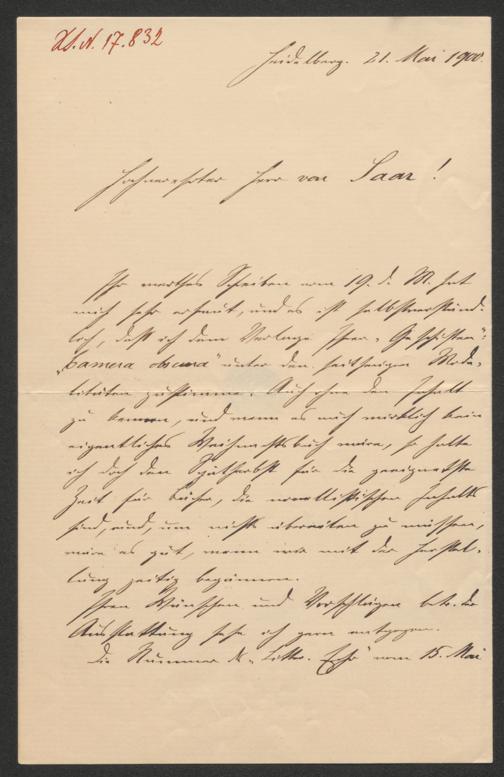 H.I.N. 17.832
Heidelberg. 21. Mai 1900.
Hochverehrter Herr von Saar!
Ihr werthes Schreiben vom 19. d. M. hat
mich sehr erfreut, und es ist selbstverständ-
lich, daß ich dem Verlage Ihrer „Geschichten":
„Camera obscura" unter den seitherigen Moda-
litäten zustimme. Auch ohne den Inhalt
zu kennen, und wenn es auch wirklich kein
eigentliches Weihnachtsbuch wäre, so halte
ich doch den Spätherbst für die geeignetste
Zeit für Bücher, die novellistischen Inhalts
sind, und, um nichts übereilen zu müssen,
wäre es gut, wenn wir mit der Herstel-
lung zeitig beginnen.
Ihren Wünschen und Vorschlägen betr. der
Ausstattung sehe ich gern entgegen.
Die Nummer d. „Litter. Echo" vom 15. Mai